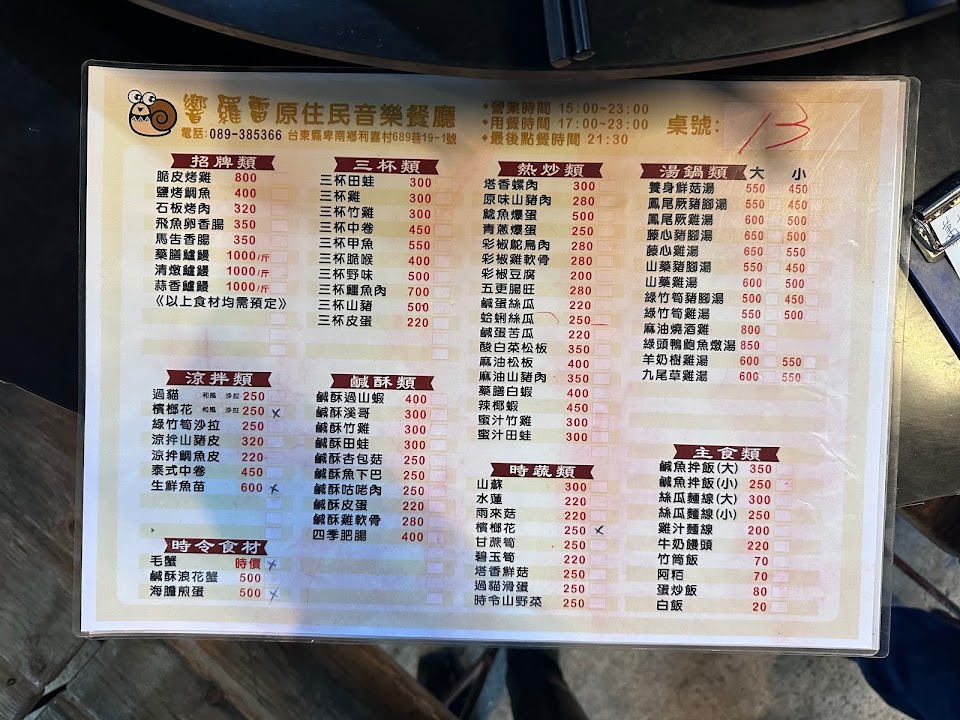 響羅雷原住民音樂餐廳
電話:089-385366 台東縣卑南鄉利嘉村689巷19-1號
◆營業時間 15:00~23:00
◆用餐時間 17:00~23:00
◆最後點餐時間 21:30
桌號: 13
招牌類
脆皮烤雞 800
鹽烤鯛魚 400
石板烤肉 320
飛魚卵香腸 350
馬告香腸 350
藥膳鱸鰻 1000/斤
清燉鱸鰻 1000/斤
蒜香鱸鰻 1000/斤
《以上食材均需預定》
涼拌類
過貓 和風 沙拉 250
檳榔花 和風 沙拉 250 ×
綠竹筍沙拉 250
涼拌山豬皮 320
涼拌鯛魚皮 220
泰式中卷 450
生鮮魚苗 600 ×
時令食材
毛蟹 時價 ×
鹹酥浪花蟹 500
海膽煎蛋 500 ×
三杯類
三杯田蛙 300
三杯雞 300
三杯竹雞 300
三杯中卷 450
三杯甲魚 550
三杯脆喉 400
三杯野味 500
三杯鱷魚肉 700
三杯山豬 500
三杯皮蛋 220
鹹酥類
鹹酥過山蝦 400
鹹酥溪哥 300
鹹酥竹雞 300
鹹酥田蛙 300
鹹酥杏包菇 250
鹹酥魚下巴 250
鹹酥咕咾肉 250
鹹酥皮蛋 220
鹹酥雞軟骨 280
四季肥腸 400
熱炒類
塔香螺肉 300
原味山豬肉 280
鯰魚爆蛋 500
青蔥爆蛋 250
彩椒鴕鳥肉 280
彩椒雞軟骨 280
彩椒豆腐 200
五更腸旺 280
鹹蛋絲瓜 220
蛤蜊絲瓜 250
鹹蛋苦瓜 220
酸白菜松板 350
麻油松板 400
麻油山豬肉 350
藥膳白蝦 400
辣椰蝦 450
蜜汁竹雞 300
蜜汁田蛙 300
時蔬類
山蘇 300
水蓮 220
雨來菇 220
檳榔花 250 ×
甘蔗筍 250
碧玉筍 220
塔香鮮菇 250
過貓滑蛋 250
時令山野菜 250
湯鍋類 大 小
養身鮮菇湯 550 450
鳳尾蕨豬腳湯 550 450
鳳尾蕨雞湯 600 500
藤心豬腳湯 650 500
藤心雞湯 650 550
山藥豬腳湯 550 450
山藥雞湯 600 500
綠竹筍豬腳湯 500 450
綠竹筍雞湯 550 500
麻油燒酒雞 800
綠頭鴨鮑魚燉湯 850
羊奶樹雞湯 600 550
九尾草雞湯 600 550
主食類
鹹魚拌飯(大) 350
鹹魚拌飯(小) 250
絲瓜麵線(大) 300
絲瓜麵線(小) 250
雞汁麵線 200
牛奶饅頭 220
竹筒飯 70
阿粨 70
蛋炒飯 80
白飯 20